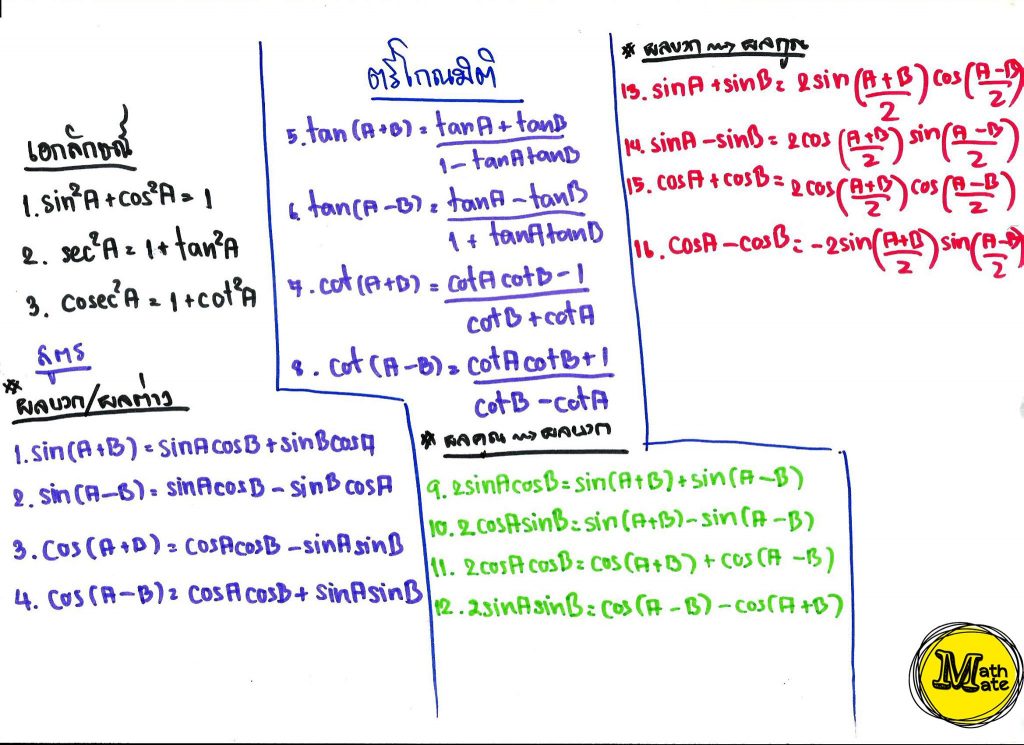 ตรีโกณมิติ
เอกลักษณ์
1. sin²A + cos²A = 1
2. sec²A = 1 + tan²A
3. cosec²A = 1 + cot²A
สูตร
* ผลบวก/ผลต่าง
1. sin(A+B) = sinAcosB + sinBcosA
2. sin(A-B) = sinAcosB - sinBcosA
3. cos(A+B) = cosAcosB - sinAsinB
4. cos(A-B) = cosAcosB + sinAsinB
5. tan(A+B) = tanA + tanB
1 - tanAtanB
6. tan(A-B) = tanA - tanB
1 + tanAtanB
7. cot(A+B) = cotAcotB - 1
cotB + cotA
8. cot(A-B) = cotAcotB + 1
cotB - cotA
* ผลคูณ → ผลบวก
9. 2sinAcosB = sin(A+B) + sin(A-B)
10. 2cosAsinB = sin(A+B) - sin(A-B)
11. 2cosAcosB = cos(A+B) + cos(A-B)
12. 2sinAsinB = cos(A-B) - cos(A+B)
* ผลบวก → ผลคูณ
13. sinA + sinB = 2sin(A+B/2)cos(A-B/2)
14. sinA - sinB = 2cos(A+B/2)sin(A-B/2)
15. cosA + cosB = 2cos(A+B/2)cos(A-B/2)
16. cosA - cosB = -2sin(A+B/2)sin(A-B/2)
Math
Mate